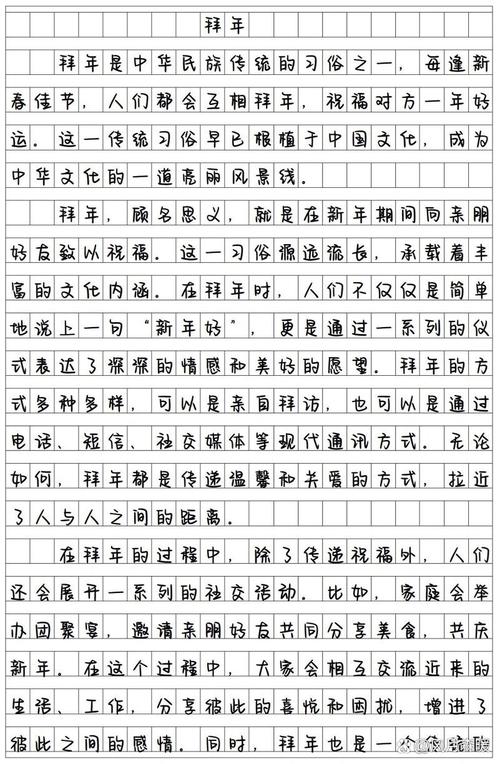 拜年
拜年是中华民族传统的习俗之一，每逢新
春佳节，人们都会互相拜年，祝福对方一年好
运。这一传统习俗早已根植于中国文化，成为
中华文化的一道亮丽风景线。
拜年，顾名思义，就是在新年期间向亲朋
好友致以祝福。这一习俗源远流长，承载着丰
富的文化内涵。在拜年时，人们不仅仅是简单
地说上一句“新年好”，更是通过一系列的仪
式表达了深深的情感和美好的愿望。拜年的方
式多种多样，可以是亲自拜访，也可以是通过
电话、短信、社交媒体等现代通讯方式。无论
如何，拜年都是传递温馨和关爱的方式，拉近
了人与人之间的距离。
在拜年的过程中，除了传递祝福外，人们
还会展开一系列的社交活动。比如，家庭会举
办团聚宴，邀请亲朋好友共同分享美食，共庆
新年。在这个过程中，大家会相互交流近来的
生活、工作，分享彼此的喜悦和困扰，增进了
彼此之间的感情。同时，拜年也是一个